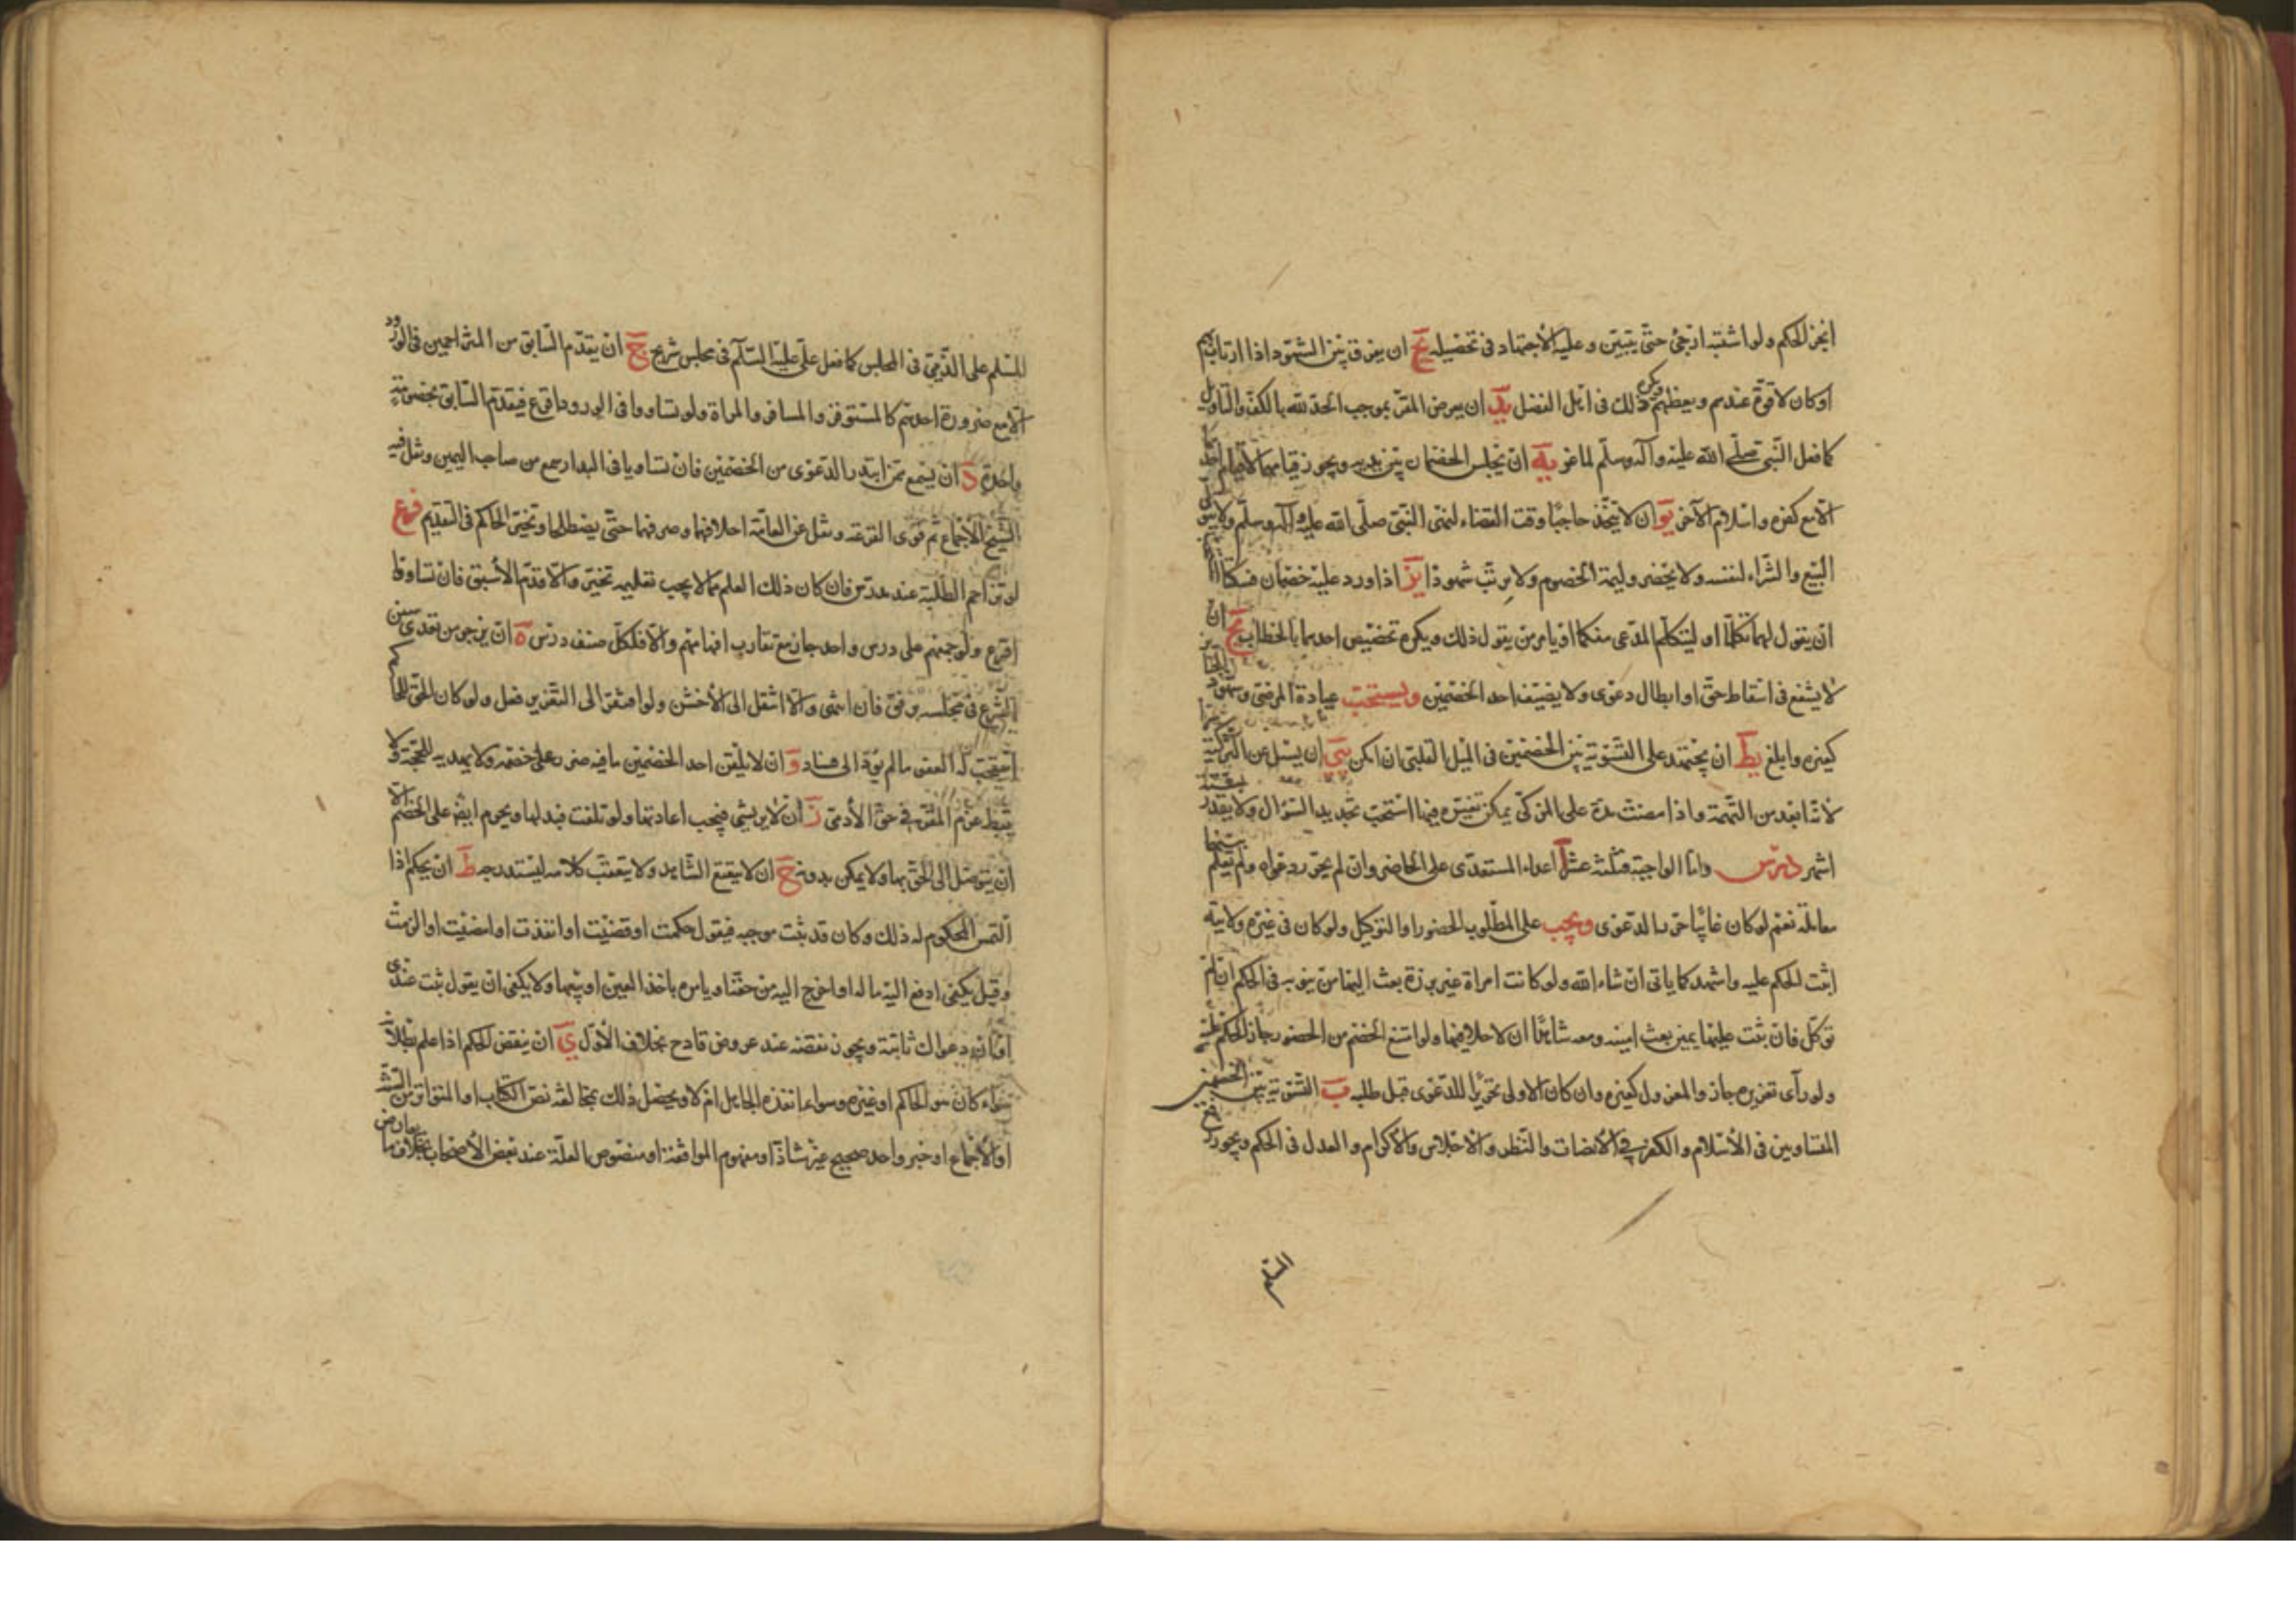 انجز الحكم ولو اشتبه ارجئ حتّى يتبيّن وعليه الاجتهاد في تحصيله يج ان يفرق بين الشهود اذا ارتاب بهم
او كان لا قوة عندهم ويعظهم ويكره ذلك في اهل الفضل يد ان يعرض المقر بموجب الحد لله بالكف والتاويل
كما فعل النبي صلّى الله عليه وآله وسلّم لماعز يه ان يجلس الخصمان بين يديه ويجوز قيامهما لا قيام احدهما
الا مع كفره واسلام الآخر يو ان لا يتخذ حاجبا وقت القضاء لنهى النبي صلّى الله عليه وآله وسلّم ولا يتولى
البيع والشراء لنفسه ولا يحضر وليمة الخصوم ولا يرتب شهودا يز اذا ورد عليه خصمان فسكتا
ان يقول لهما تكلما او ليتكلم المدعى منكما او يامر من يقول ذلك ويكره تخصيص احدهما بالخطاب يح ان
لا يشفع في اسقاط حق او ابطال دعوى ولا يضيف احد الخصمين ويستحب عيادة المرضى وشهود الجنائز
كغيره وابلغ يط ان يجتهد على التسوية بين الخصمين في الميل القلبى ان امكن ك ان يسئل عن التزكية سرا
لانه ابعد من التهمة واذا مضت مدة على المزكّى يمكن تغيره فيها استحب تجديد السؤال ولا يتقدر بستة
اشهر درس واما الواجبة فثلثة عشر آ اعداء المستعدى على الحاضر وان لم يحرر دعواه ولم يعلم بينهما
معاملة نعم لو كان غائبا حرر الدعوى ويجب على المطلوب الحضور او التوكيل ولو كان في غيره ولايته
اثبت الحكم عليه واشهد كما ياتى ان شاء الله ولو كانت امراة غير برزة بعث اليها من ينوبه في الحكم ان لم
توكل فان ثبت عليها يمين بعث امينه ومعه شاهدان لاحلافها ولو امتنع الخصم من الحضور جاز الحكم عليه
ولو رآى تعزيره جاز والمعزول كغيره وان كان الاولى تحرير الدعوى قبل طلبه ب التسوية بين الخصمين
المتساويين في الاسلام والكفر في الانصات والنظر والاجلاس والاكرام والعدل في الحكم ويجوز رفع
المسلم
للمسلم على الذمى في المجلس كما فعل على عليه السّلم في مجلس شريح ج ان يقدم السّابق من المتزاحمين في الورود
الا مع ضرورة احدهم كالمستوفز والمسافر والمراة ولو تساووا في الورود اقرع فيقدم السابق بخصومة
واحدة د ان يسمع ممن ابتدر الدعوى من الخصمين فان تساويا في البدار سمع من صاحب اليمين ونقل فيه
الشيخ الاجماع ثم قوى القرعة ونقل عن العامة احلافهما وصرفهما حتّى يصطلحا وتخير الحاكم في التقديم فرع
لو تزاحم الطلبة عند مدرس فان كان ذلك العلم مما لا يجب تعليمه تخير والا قدم الاسبق فان تساوقا
اقرع ولو جمعهم على درس واحد جاز مع تقارب افهامهم والا فلكل صنف درس ه ان يزجر من تعدى سنن
الشرع في مجلسه برفق فان انتهى والا انتقل الى الاخشن ولو افتقر الى التعزير فعل ولو كان الحق للحاكم
استحب له العفو ما لم يؤد الى فساد و ان لا يلقن احد الخصمين ما فيه ضرر على خصمه ولا يهديه للحجة ولا
يثبط عزم المقر في حق الادمى ز ان لا يرتشى فيجب اعادتها ولو تلفت فبدلها ويحرم ايضا على الخصم الا
ان يتوصل الى الحق بها ولا يمكن بدونه ح ان لا يتعتع الشاهد ولا يتعقب كلامه ليستدرجه ط ان يحكم اذا
التمس المحكوم له ذلك وكان قد ثبت موجبه فيقول حكمت او قضيت او انفذت او امضيت او الزمت
وقيل يكفى ادفع اليه ماله او اخرج اليه من حقه او يامره باخذ العين او بيعها ولا يكفى ان يقول ثبت عندى
او ان دعواك ثابتة ويجوز نقضه عند عروض قادح بخلاف الاول ى ان ينقض الحكم اذا علم بطلانه
سواء كان هو الحاكم او غيره وسواء انفذه الجاهل ام لا ويحصل ذلك بمخالفة نص الكتاب او المتواتر من السنة
او الاجماع او خبر واحد صحيح غير شاذ او مفهوم الموافقة او منصوص العلة عند بعض الاصحاب بخلاف ما تعارض